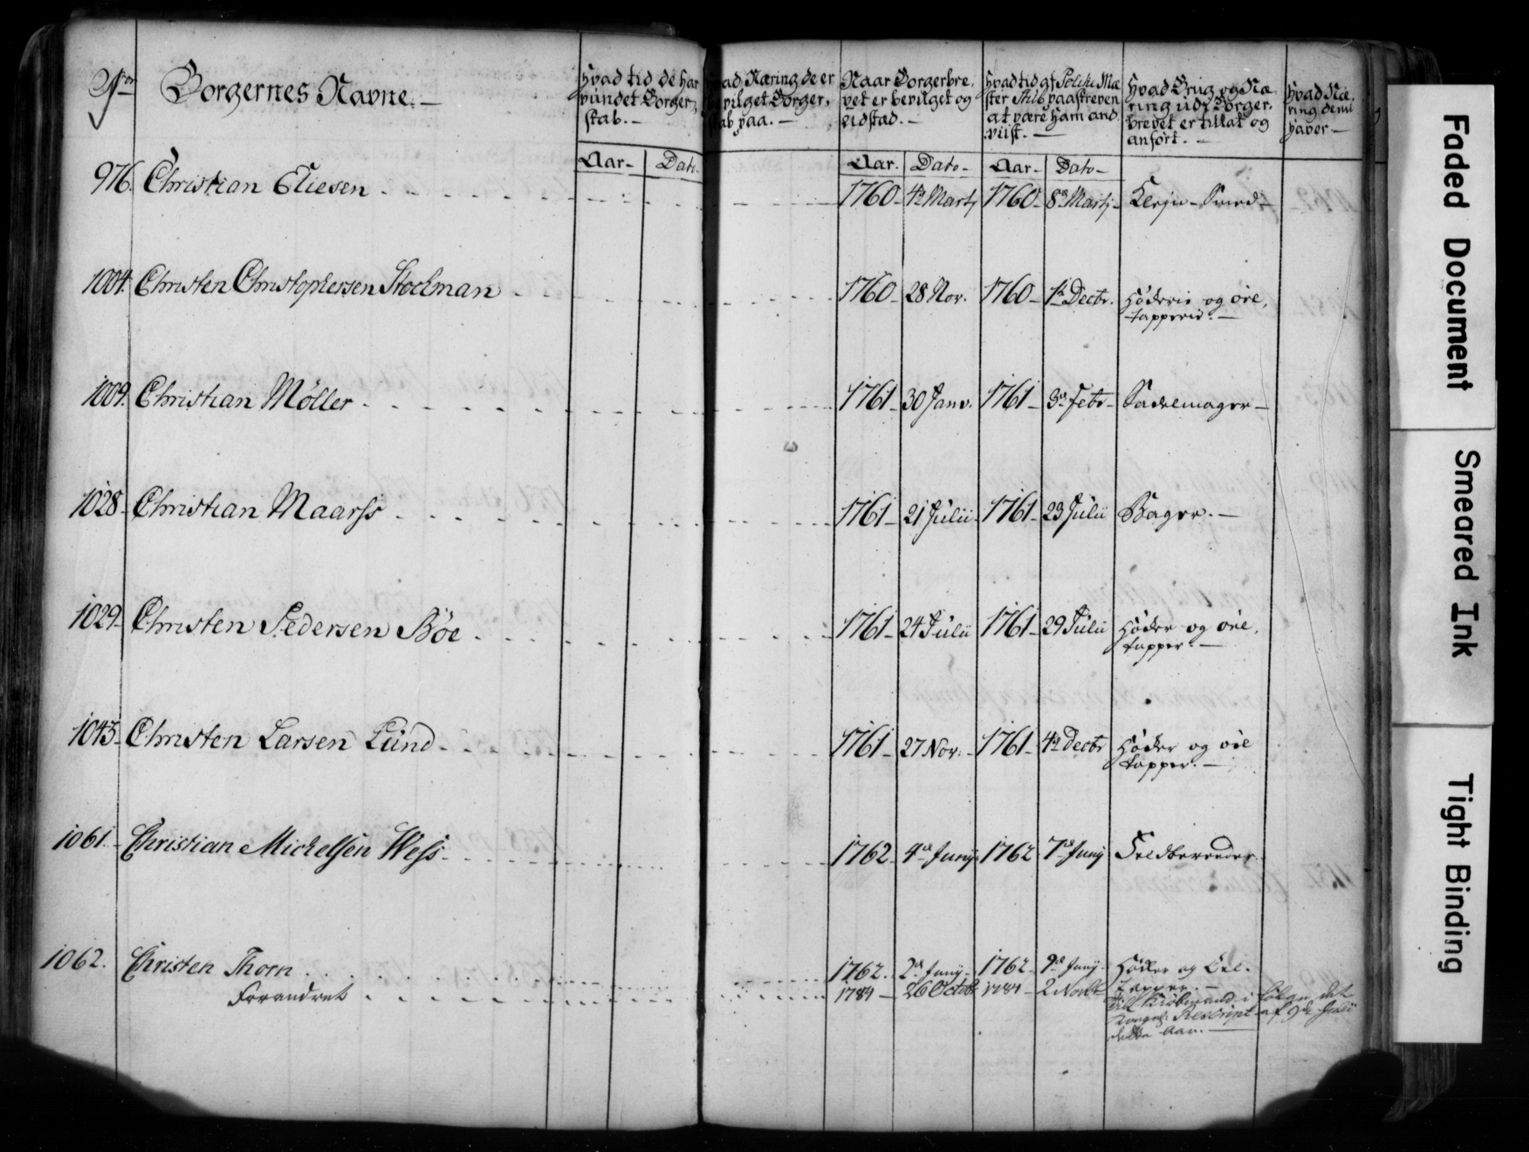 No. Borgernes Navne.
Hvad tid de har vundet Borgerskab.
Hvad Næring de er bevilget Borgerskab paa.
Naar Borgerbrevet er bevilget og udstæd.
Hvad tid af Politie Mester Skib paaskreven at være ham anviist.
Hvad Brug og Næring udi Borgerbrevet er tillat og anført.
Hvad Næring de nu haver
Aar. Dato Aar. Dato Aar. Dato
976. Christian Eliesen 1760 4de Martj 1760 8de Martj Klejn-Smed
1004. Christen Christophersen Stockman 1760 28 Nov. 1760 1te Decbr. Høderie og øel,
tapperie.
1009. Christian Møller 1761 30 Janv. 1761 3de Febr Sadelmager
1028 Christian Maarss 1761 21 Julii 1761 23 Julii Bager.
1029 Christen Pedersen Böe 1761 24 Julii 1761 29 Julii Høder og øel,
tapper.
1043 Christen Larsen Lund 1761 27 Nov. 1761 4de Decbr Høder og øel
tapper.
1061 Christian Michelsen Wess 1762 4de Junij 1762 7de Junij Feldbereeder
1062. Christen Thorn 1762 2de Junij 1762 9de Junij Høker og Øel-
tapper.
Forandret 1784 26 Octobr 1784 2 Novbr til Kiøbmand i følge det
Kongel: Rescript af 9de Julii
dette Aar.
Faded Document
Smeared Ink
Tight Binding